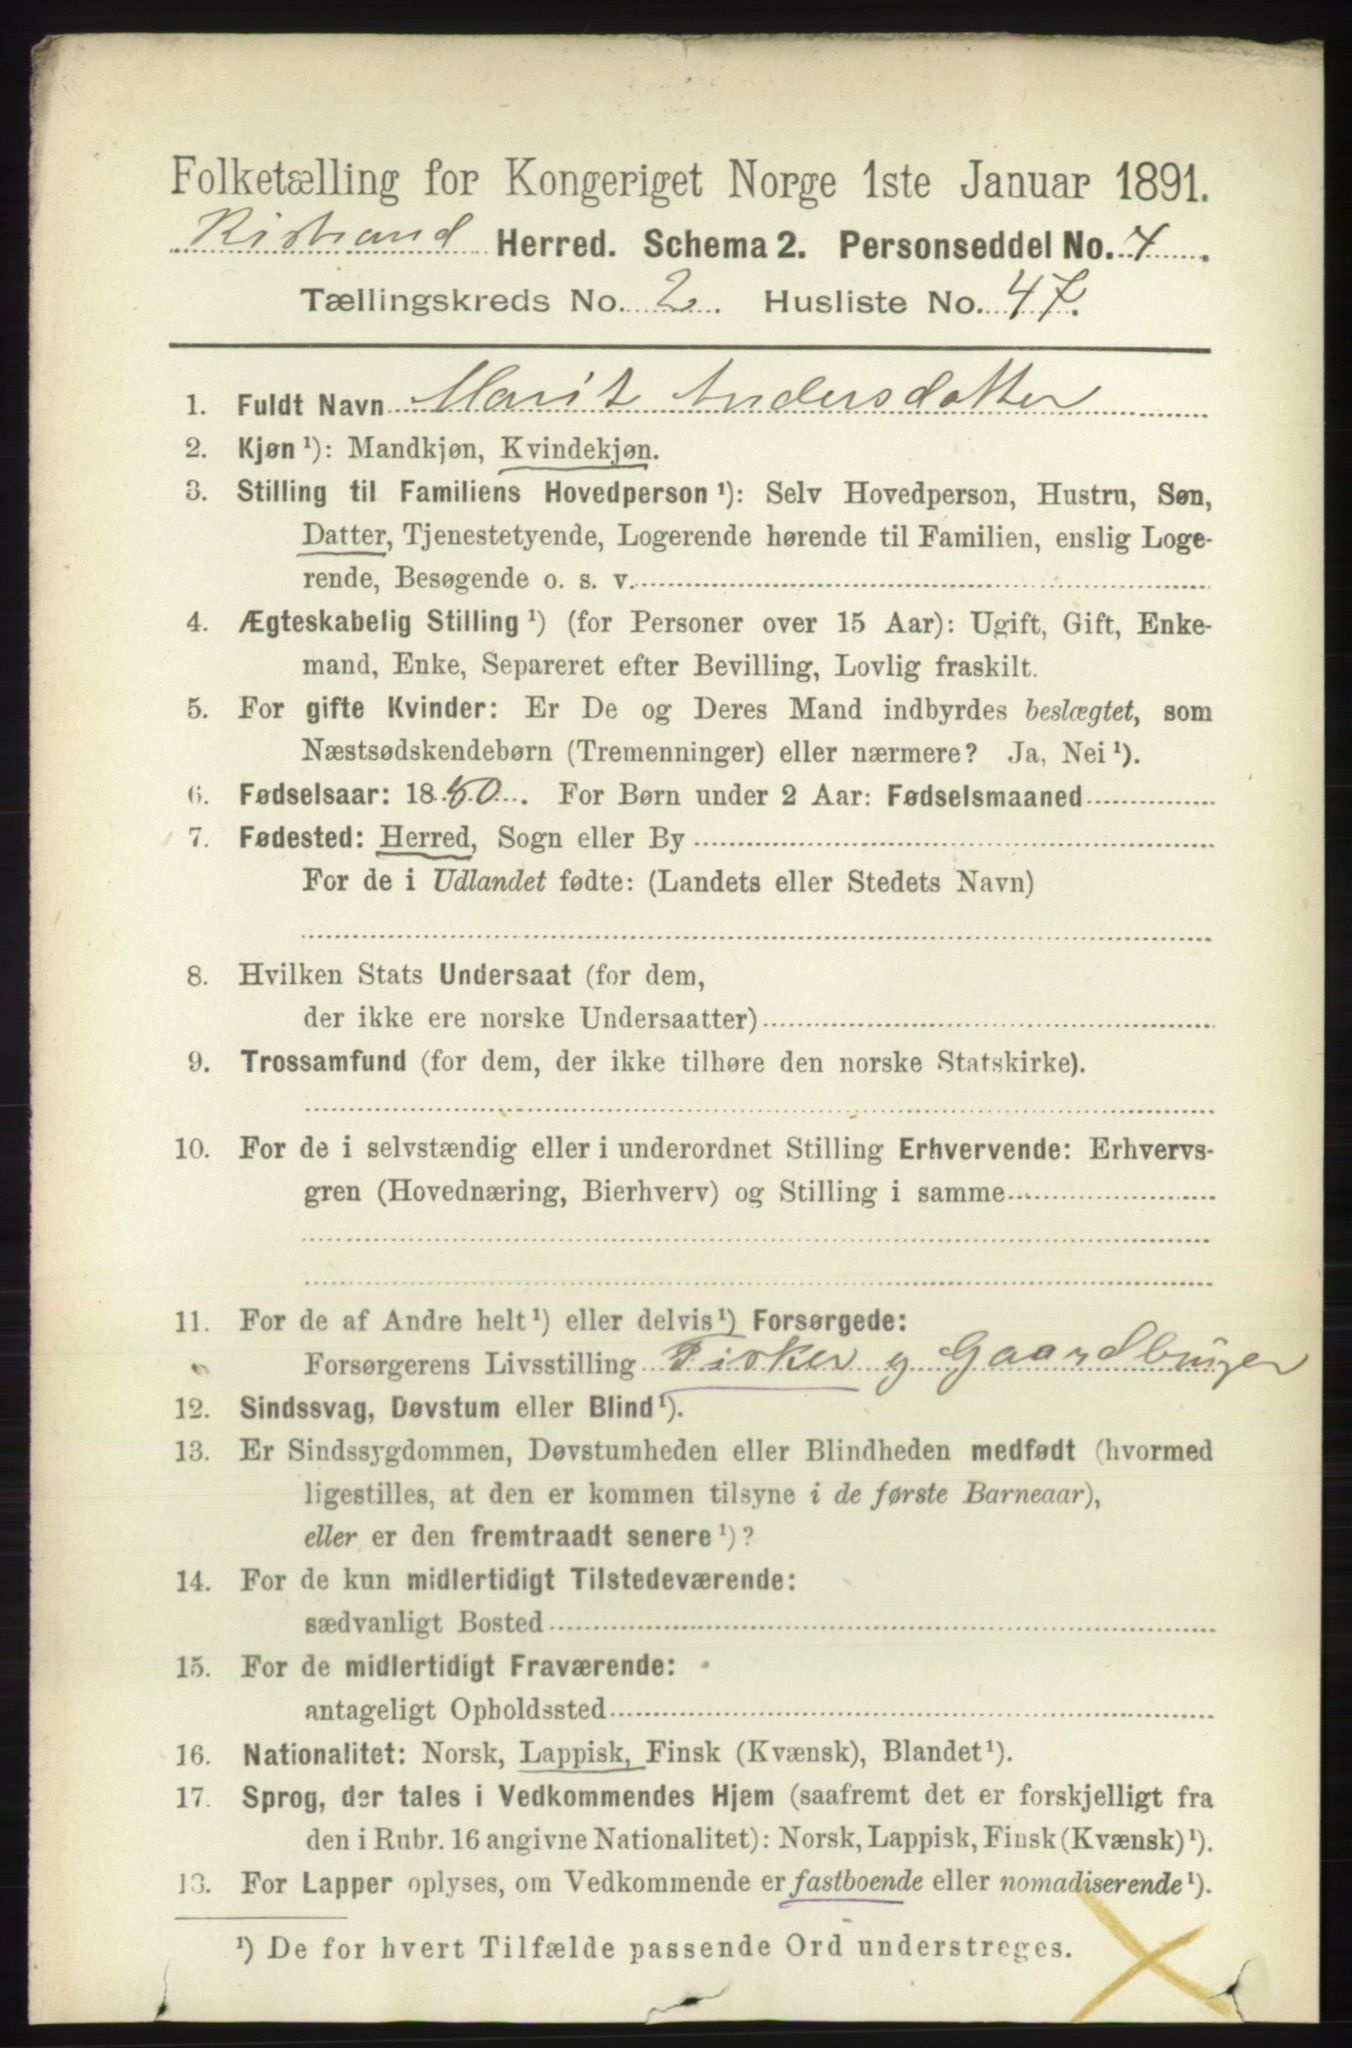 Folketælling for Kongeriget Norge 1ste Januar 1891.
Kistrand Herred. Schema 2. Personseddel No. 4.
Tællingskreds No. 2. Husliste No. 47.
1. Fuldt Navn Marit Andersdatter
2. Kjøn ¹): Mandkjøn, Kvindekjøn.
3. Stilling til Familiens Hovedperson ¹): Selv Hovedperson, Hustru, Søn,
Datter, Tjenestetyende, Logerende hørende til Familien, enslig Loge-
rende, Besøgende o. s. v.
4. Ægteskabelig Stilling ¹) (for Personer over 15 Aar): Ugift, Gift, Enke-
mand, Enke, Separeret efter Bevilling, Lovlig fraskilt.
5. For gifte Kvinder: Er De og Deres Mand indbyrdes beslægtet, som
Næstsødskendebørn (Tremenninger) eller nærmere? Ja, Nei ¹).
6. Fødselsaar: 18 80. For Børn under 2 Aar: Fødselsmaaned
7. Fødested: Herred, Sogn eller By
For de i Udlandet fødte: (Landets eller Stedets Navn)
8. Hvilken Stats Undersaat (for dem,
der ikke ere norske Undersaatter)
9. Trossamfund (for dem, der ikke tilhøre den norske Statskirke).
10. For de i selvstændig eller i underordnet Stilling Erhvervende: Erhvervs-
gren (Hovednæring, Bierhverv) og Stilling i samme
11. For de af Andre helt ¹) eller delvis ¹) Forsørgede:
Forsørgerens Livsstilling Fisker og Gaardbruger
12. Sindssvag, Døvstum eller Blind ¹).
13. Er Sindssygdommen, Døvstumheden eller Blindheden medfødt (hvormed
ligestilles, at den er kommen tilsyne i de første Barneaar),
eller er den fremtraadt senere ¹)?
14. For de kun midlertidigt Tilstedeværende:
sædvanligt Bosted
15. For de midlertidigt Fraværende:
antageligt Opholdssted
16. Nationalitet: Norsk, Lappisk, Finsk (Kvænsk), Blandet ¹).
17. Sprog, der tales i Vedkommendes Hjem (saafremt det er forskjelligt fra
den i Rubr. 16 angivne Nationalitet): Norsk, Lappisk, Finsk (Kvænsk) ¹).
18. For Lapper oplyses, om Vedkommende er fastboende eller nomadiserende ¹).
¹) De for hvert Tilfælde passende Ord understreges.